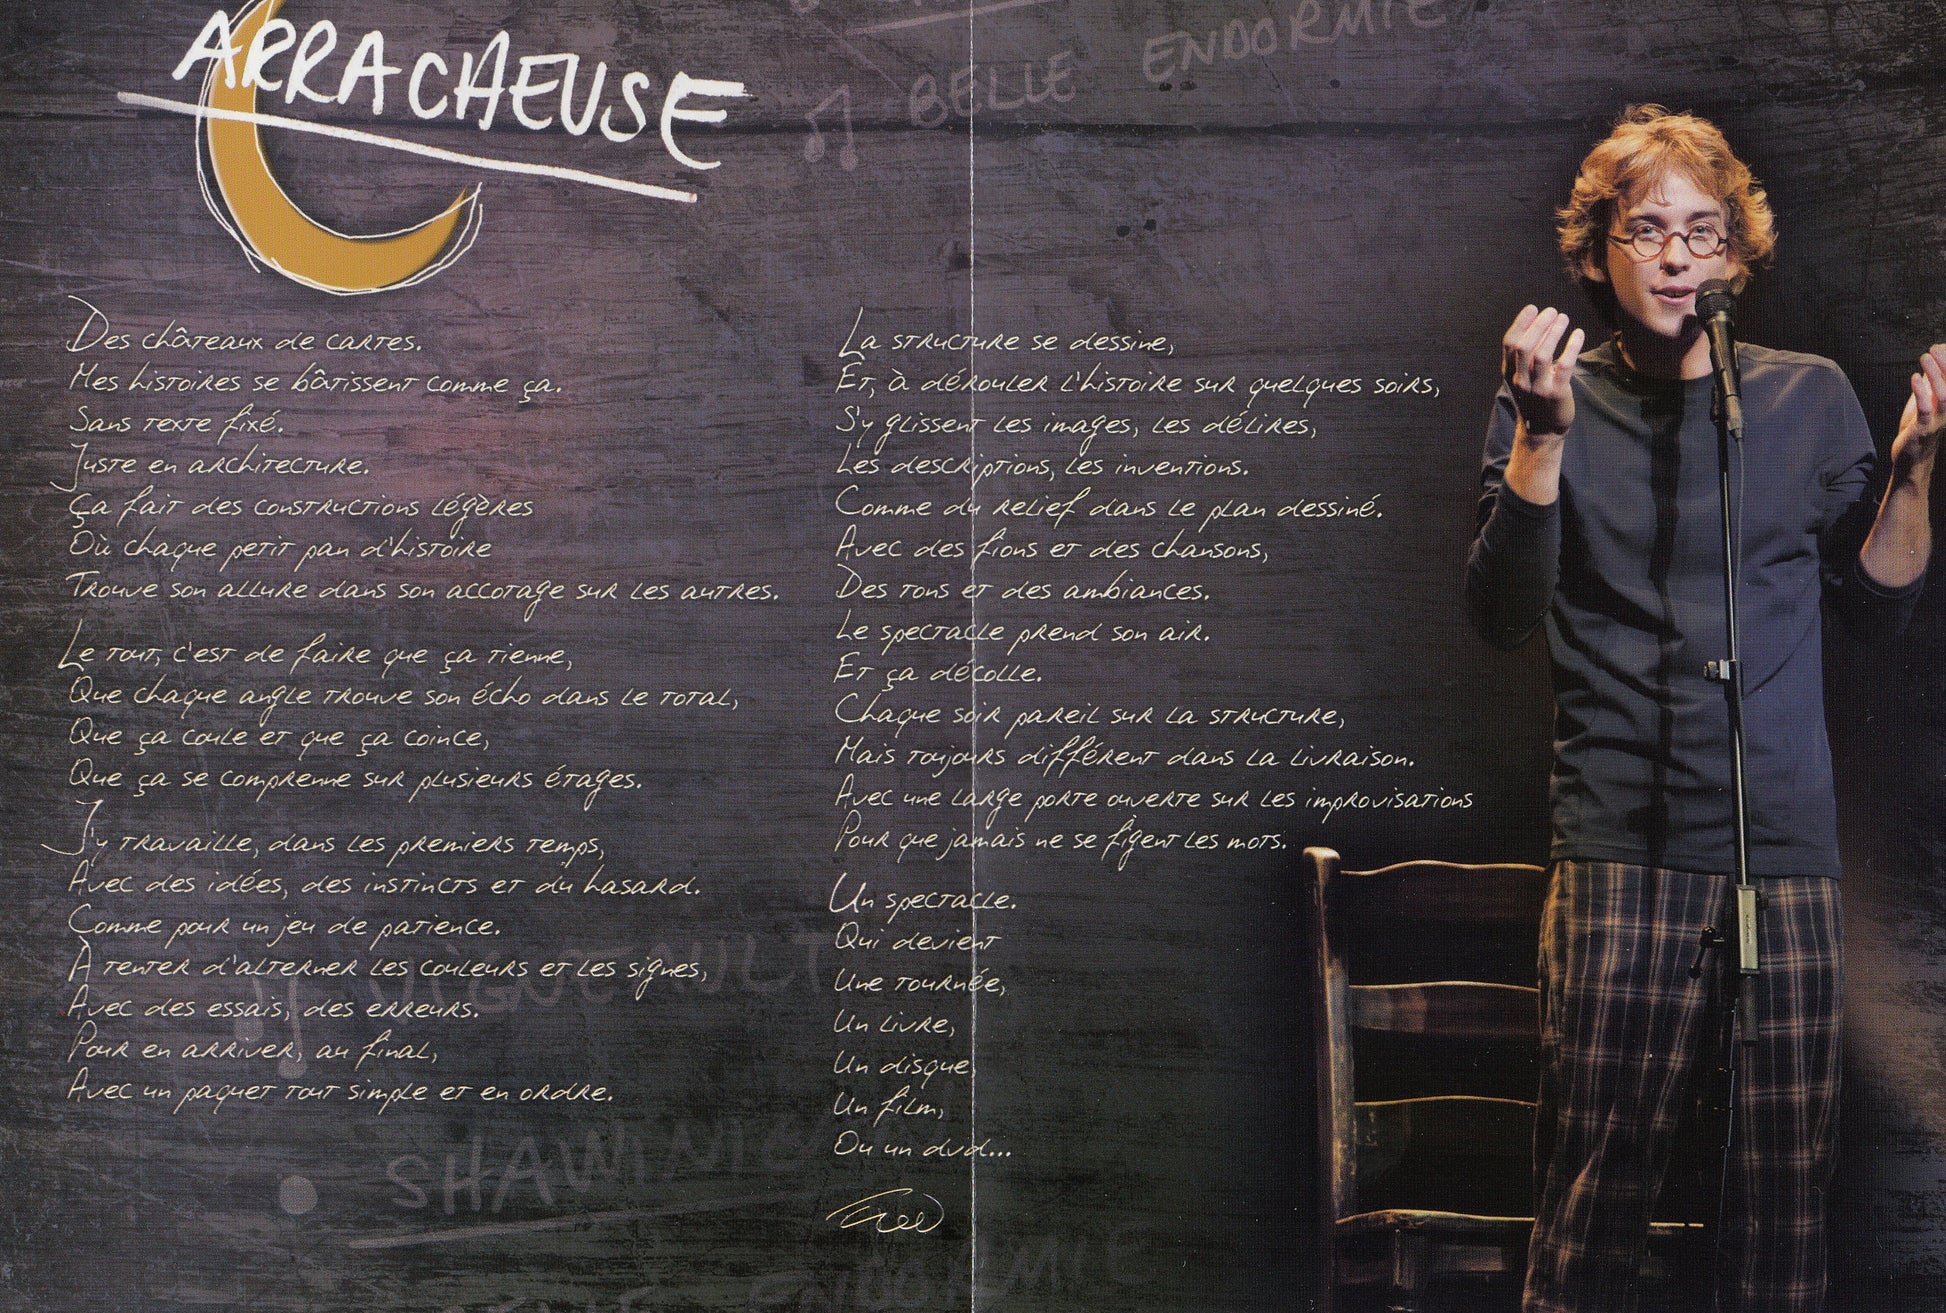 ARRACHEUSE
BELLE ENDORMIE
Des châteaux de cartes.
Mes histoires se bâtissent comme ça.
Sans texte fixé.
Juste en architecture.
Ça fait des constructions légères
Où chaque petit pan d'histoire
Trouve son allure dans son accotage sur les autres.
Le tout, c'est de faire que ça tienne,
Que chaque angle trouve son écho dans le total,
Que ça coule et que ça coince,
Que ça se comprenne sur plusieurs étages.
J'y travaille, dans les premiers temps,
Avec des idées, des instincts et du hasard.
Comme pour un jeu de patience.
À tenter d'alterner les couleurs et les signes,
Avec des essais, des erreurs.
Pour en arriver, au final,
Avec un paquet tout simple et en ordre.
La structure se dessine,
Et, à dérouler l'histoire sur quelques soirs,
S'y glissent les images, les délires,
Les descriptions, les inventions.
Comme du relief dans le plan dessiné.
Avec des fions et des chansons,
Des tons et des ambiances.
Le spectacle prend son air.
Et ça décolle.
Chaque soir pareil sur la structure,
Mais toujours différent dans la livraison.
Avec une large porte ouverte sur les improvisations
Pour que jamais ne se figent les mots.
Un spectacle.
Qui devient
Une tournée,
Un livre,
Un disque,
Un film,
Ou un dvd...
Fred
VIGNEAULT
ENDORMIE